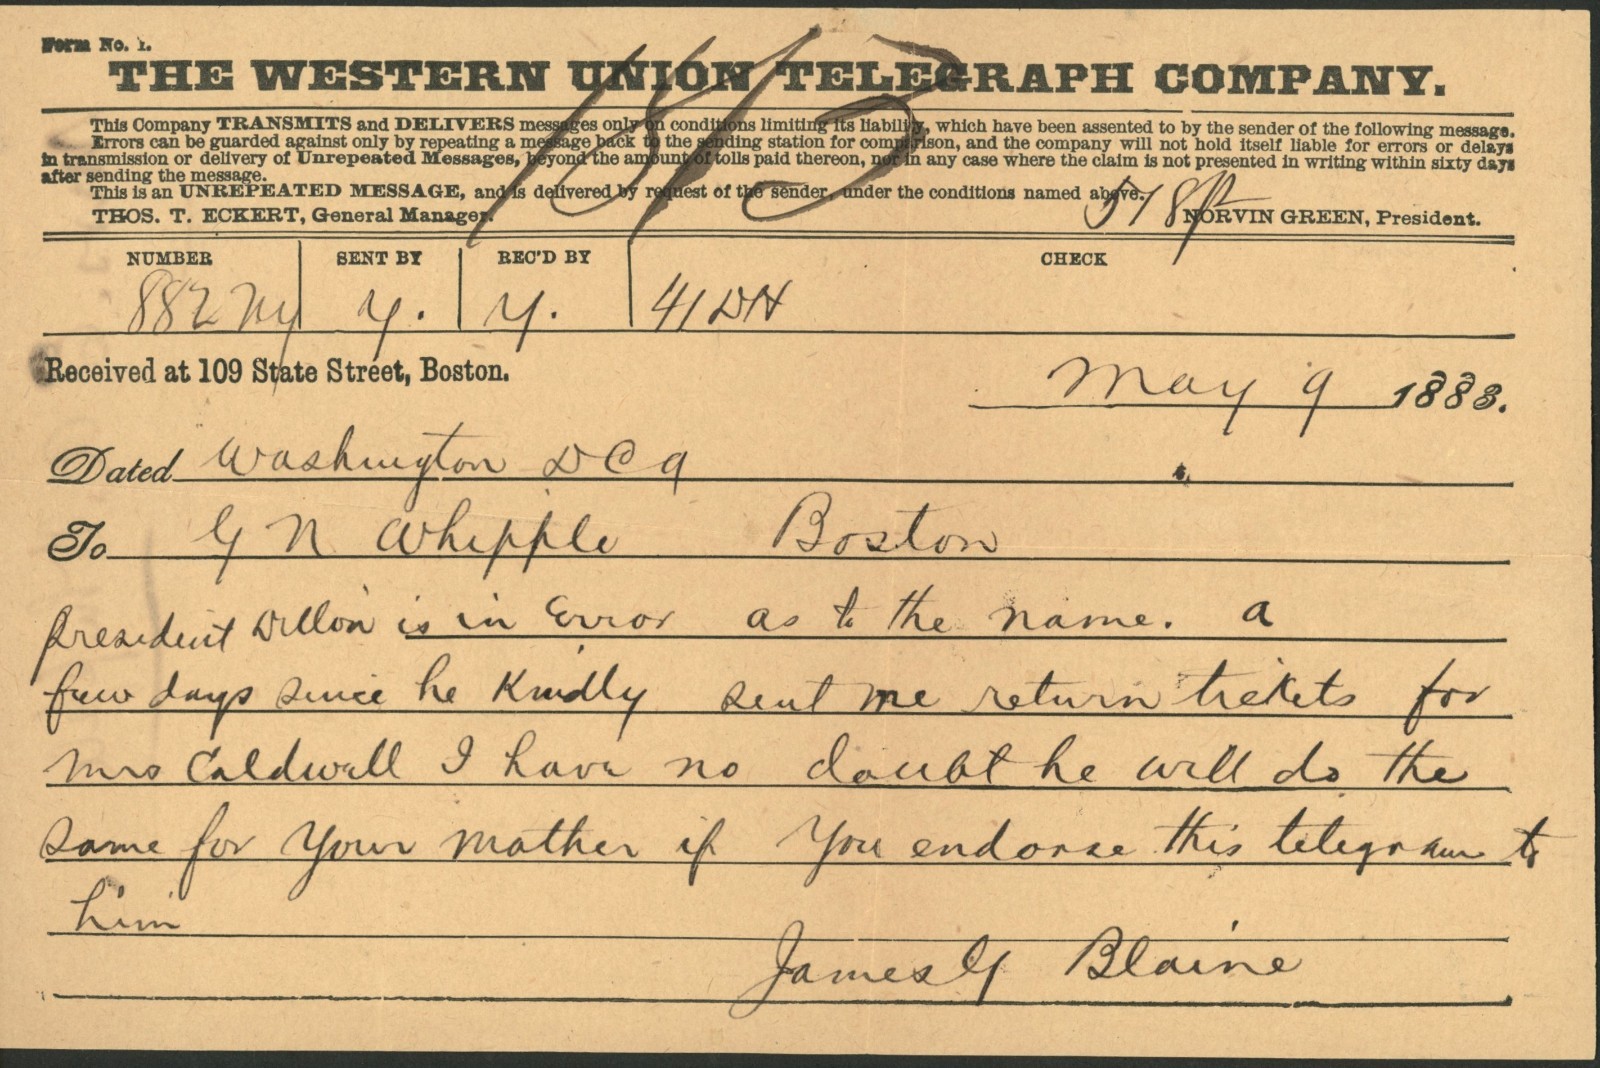 Form No. 1.
THE WESTERN UNION TELEGRAPH COMPANY.
This Company TRANSMITS and DELIVERS messages only on conditions limiting its liability, which have been assented to by the sender of the following message.
Errors can be guarded against only by repeating a message back to the sending station for comparison, and the company will not hold itself liable for errors or delays
in transmission or delivery of Unrepeated Messages, beyond the amount of tolls paid thereon, nor in any case where the claim is not presented in writing within sixty days
after sending the message.
This is an UNREPEATED MESSAGE, and is delivered by request of the sender, under the conditions named above.
THOS. T. ECKERT, General Manager. NORVIN GREEN, President.
NUMBER SENT BY REC'D BY CHECK
882 Ny y. y. 41 DH
Received at 109 State Street, Boston.
May 9 1883.
Dated Washington DC 9
To G N Whipple Boston
President Dillon is in Error as to the name. a
few days since he Kindly sent me return tickets for
Mrs Caldwell I have no doubt he will do the
same for Your Mother if You endorse this telegram to
him
James G Blaine